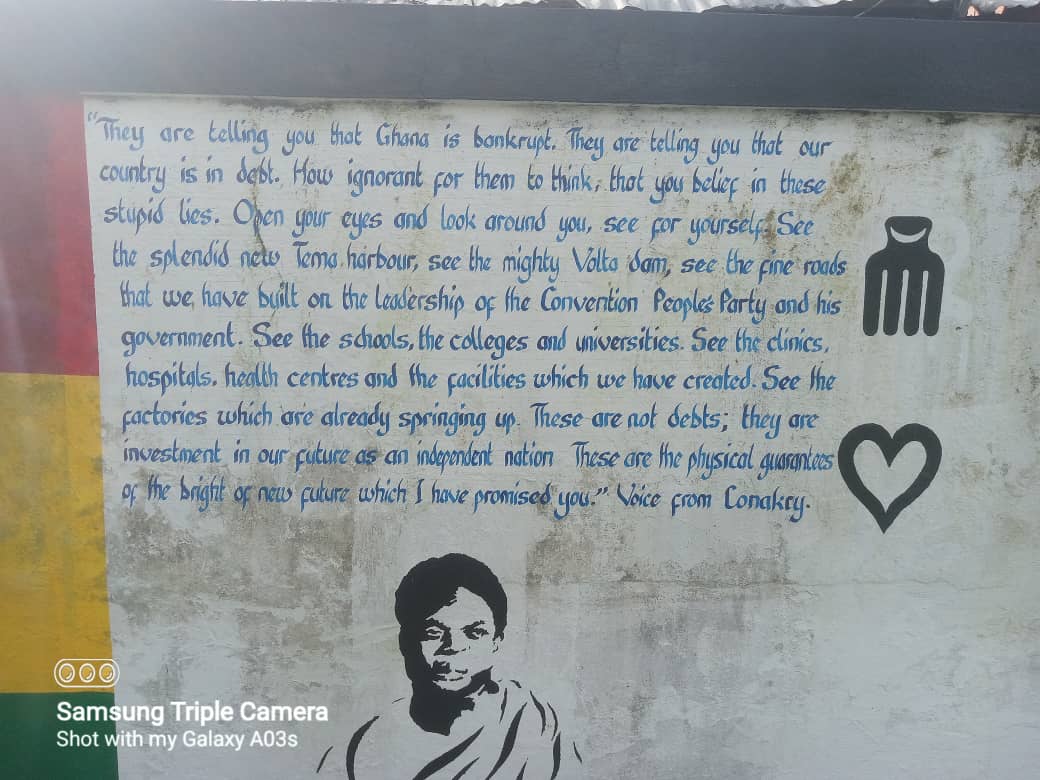 "They are telling you that Ghana is bankrupt. They are telling you that our
country is in debt. How ignorant for them to think, that you belief in these
stupid lies. Open your eyes and look around you, see for yourself. See
the splendid new Tema harbour, see the mighty Volta dam, see the fine roads
that we have built on the leadership of the Convention People's Party and his
government. See the schools, the colleges and universities. See the clinics,
hospitals, health centres and the facilities which we have created. See the
factories which are already springing up. These are not debts; they are
investment in our future as an independent nation These are the physical guarantees
of the bright of new future which I have promised you." Voice from Conakry.
Samsung Triple Camera
Shot with my Galaxy A03s